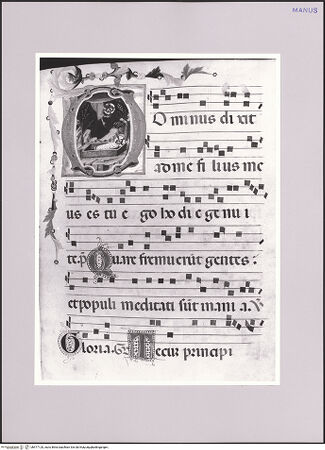 MANUS
Dominus dixit
ad me fi lius me
us es tu e go ho di e ge nu i
te. p Quare fremuerūt gentes:
et populi meditati sūt inania. V
Gloria. Tecū principi